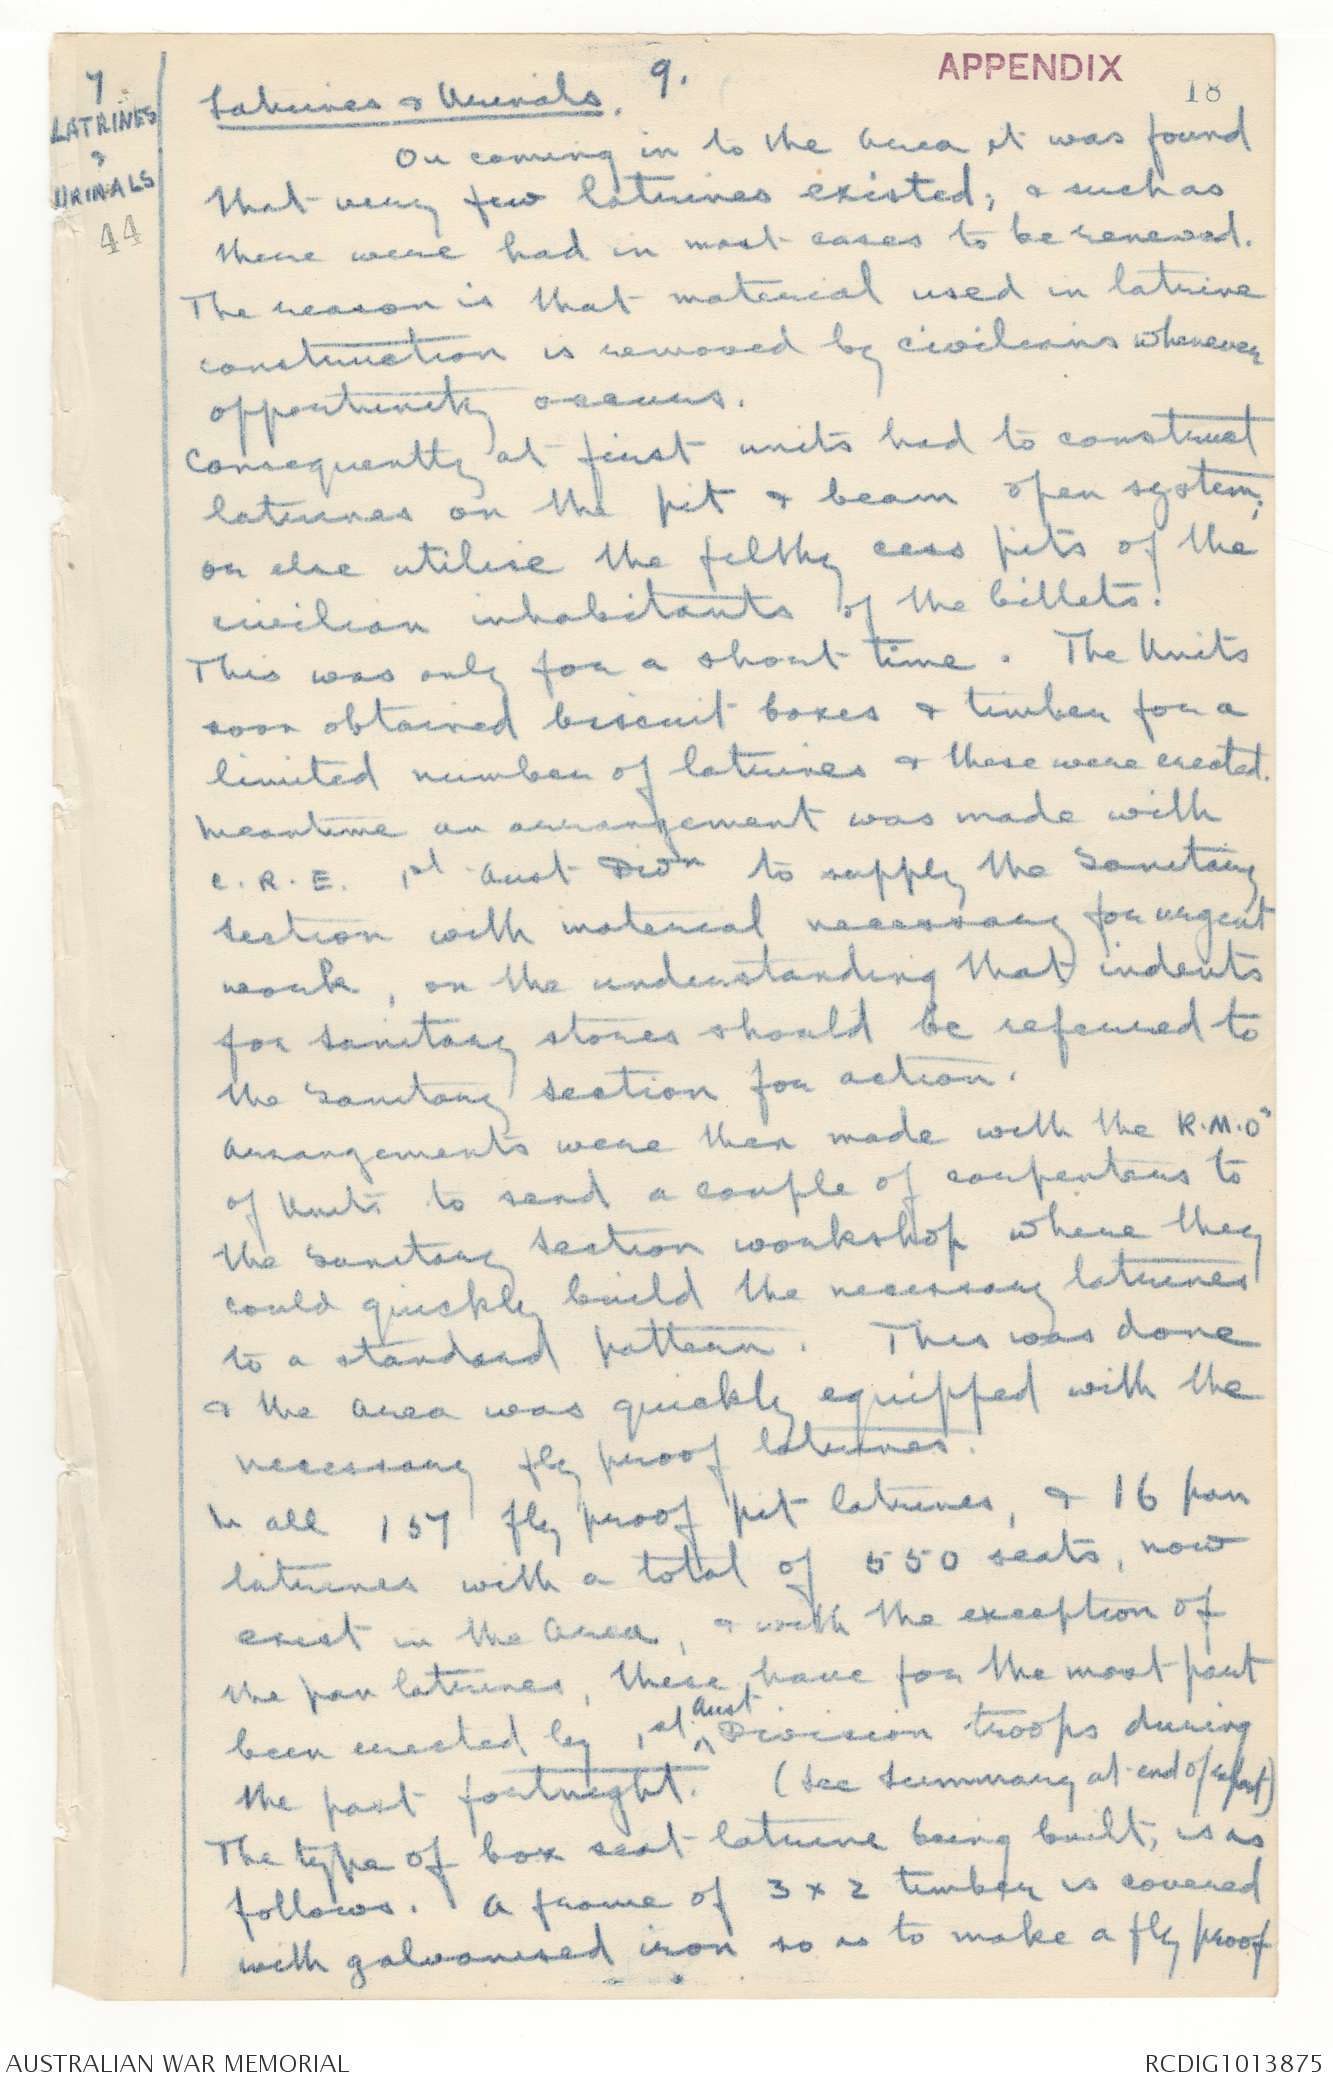 9.
APPENDIX
18
7
LATRINES
&
URINALS
44
Latrines & Urinals.
On coming in to the area it was found
that very few latrines existed, & such as
there were had in most cases to be renewed.
The reason is that material used in latrine
construction is removed by civilians whenever
opportunity occurs.
Consequently at first units had to construct
latrines on the pit & beam open system;
or else utilise the filthy cess pits of the
civilian inhabitants of the billets.
This was only for a short time. The Units
soon obtained biscuit boxes & timber for a
limited number of latrines & these were erected.
Meantime an arrangement was made with
C.R.E. 1st Aust Divn to supply the Sanitary
section with material necessary for urgent
work, on the understanding that indents
for sanitary stores should be referred to
the Sanitary section for action.
Arrangements were then made with the R.M.Os
of Units to send a couple of carpenters to
the Sanitary section workshop where they
could quickly build the necessary latrines
to a standard pattern. This was done
& the area was quickly equipped with the
necessary fly proof latrines.
In all 157 fly proof pit latrines, & 16 pan
latrines with a total of 550 seats, now
exist in the area, & with the exception of
the pan latrines, these have for the most part
been erected by 1st ^Aust Division troops during
the past fortnight. (See summary at end of report)
The type of box seat latrine being built, is as
follows. A frame of 3 x 2 timber is covered
with galvanised iron so as to make a fly proof
AUSTRALIAN WAR MEMORIAL
RCDIG1013875